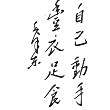 自己動手
豐衣足食
毛澤東